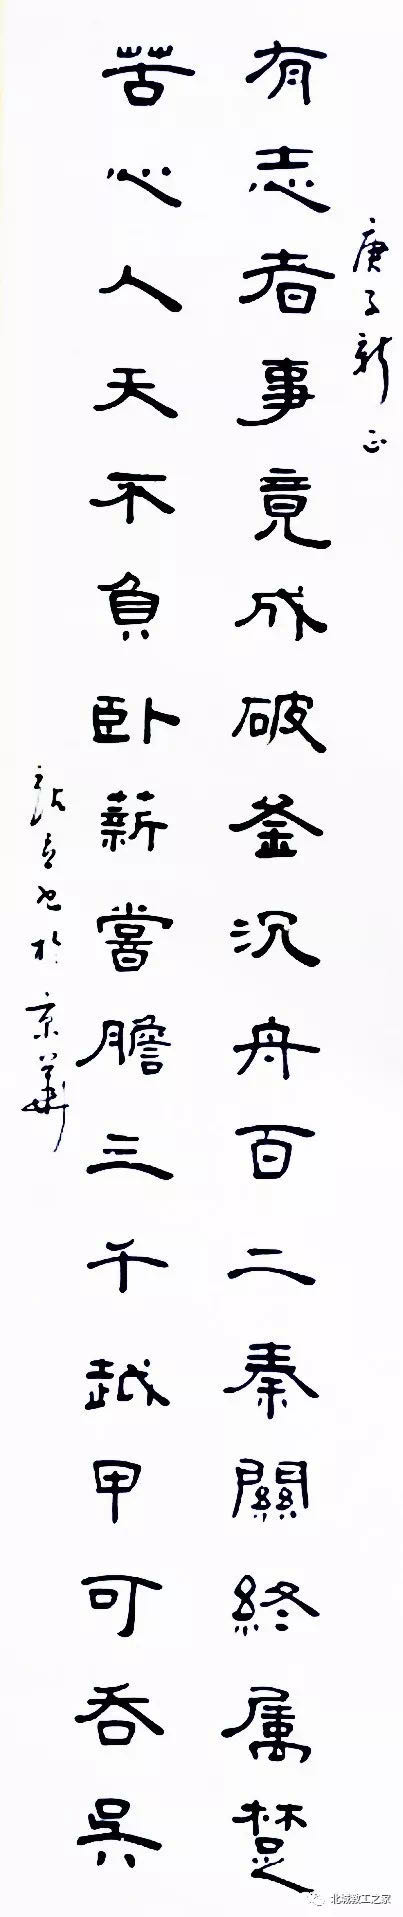 庚子新正
有志者事竟成破釜沉舟百二秦關終属楚
苦心人天不負卧薪嘗膽三千越甲可吞吳
於京華
北城教工之家